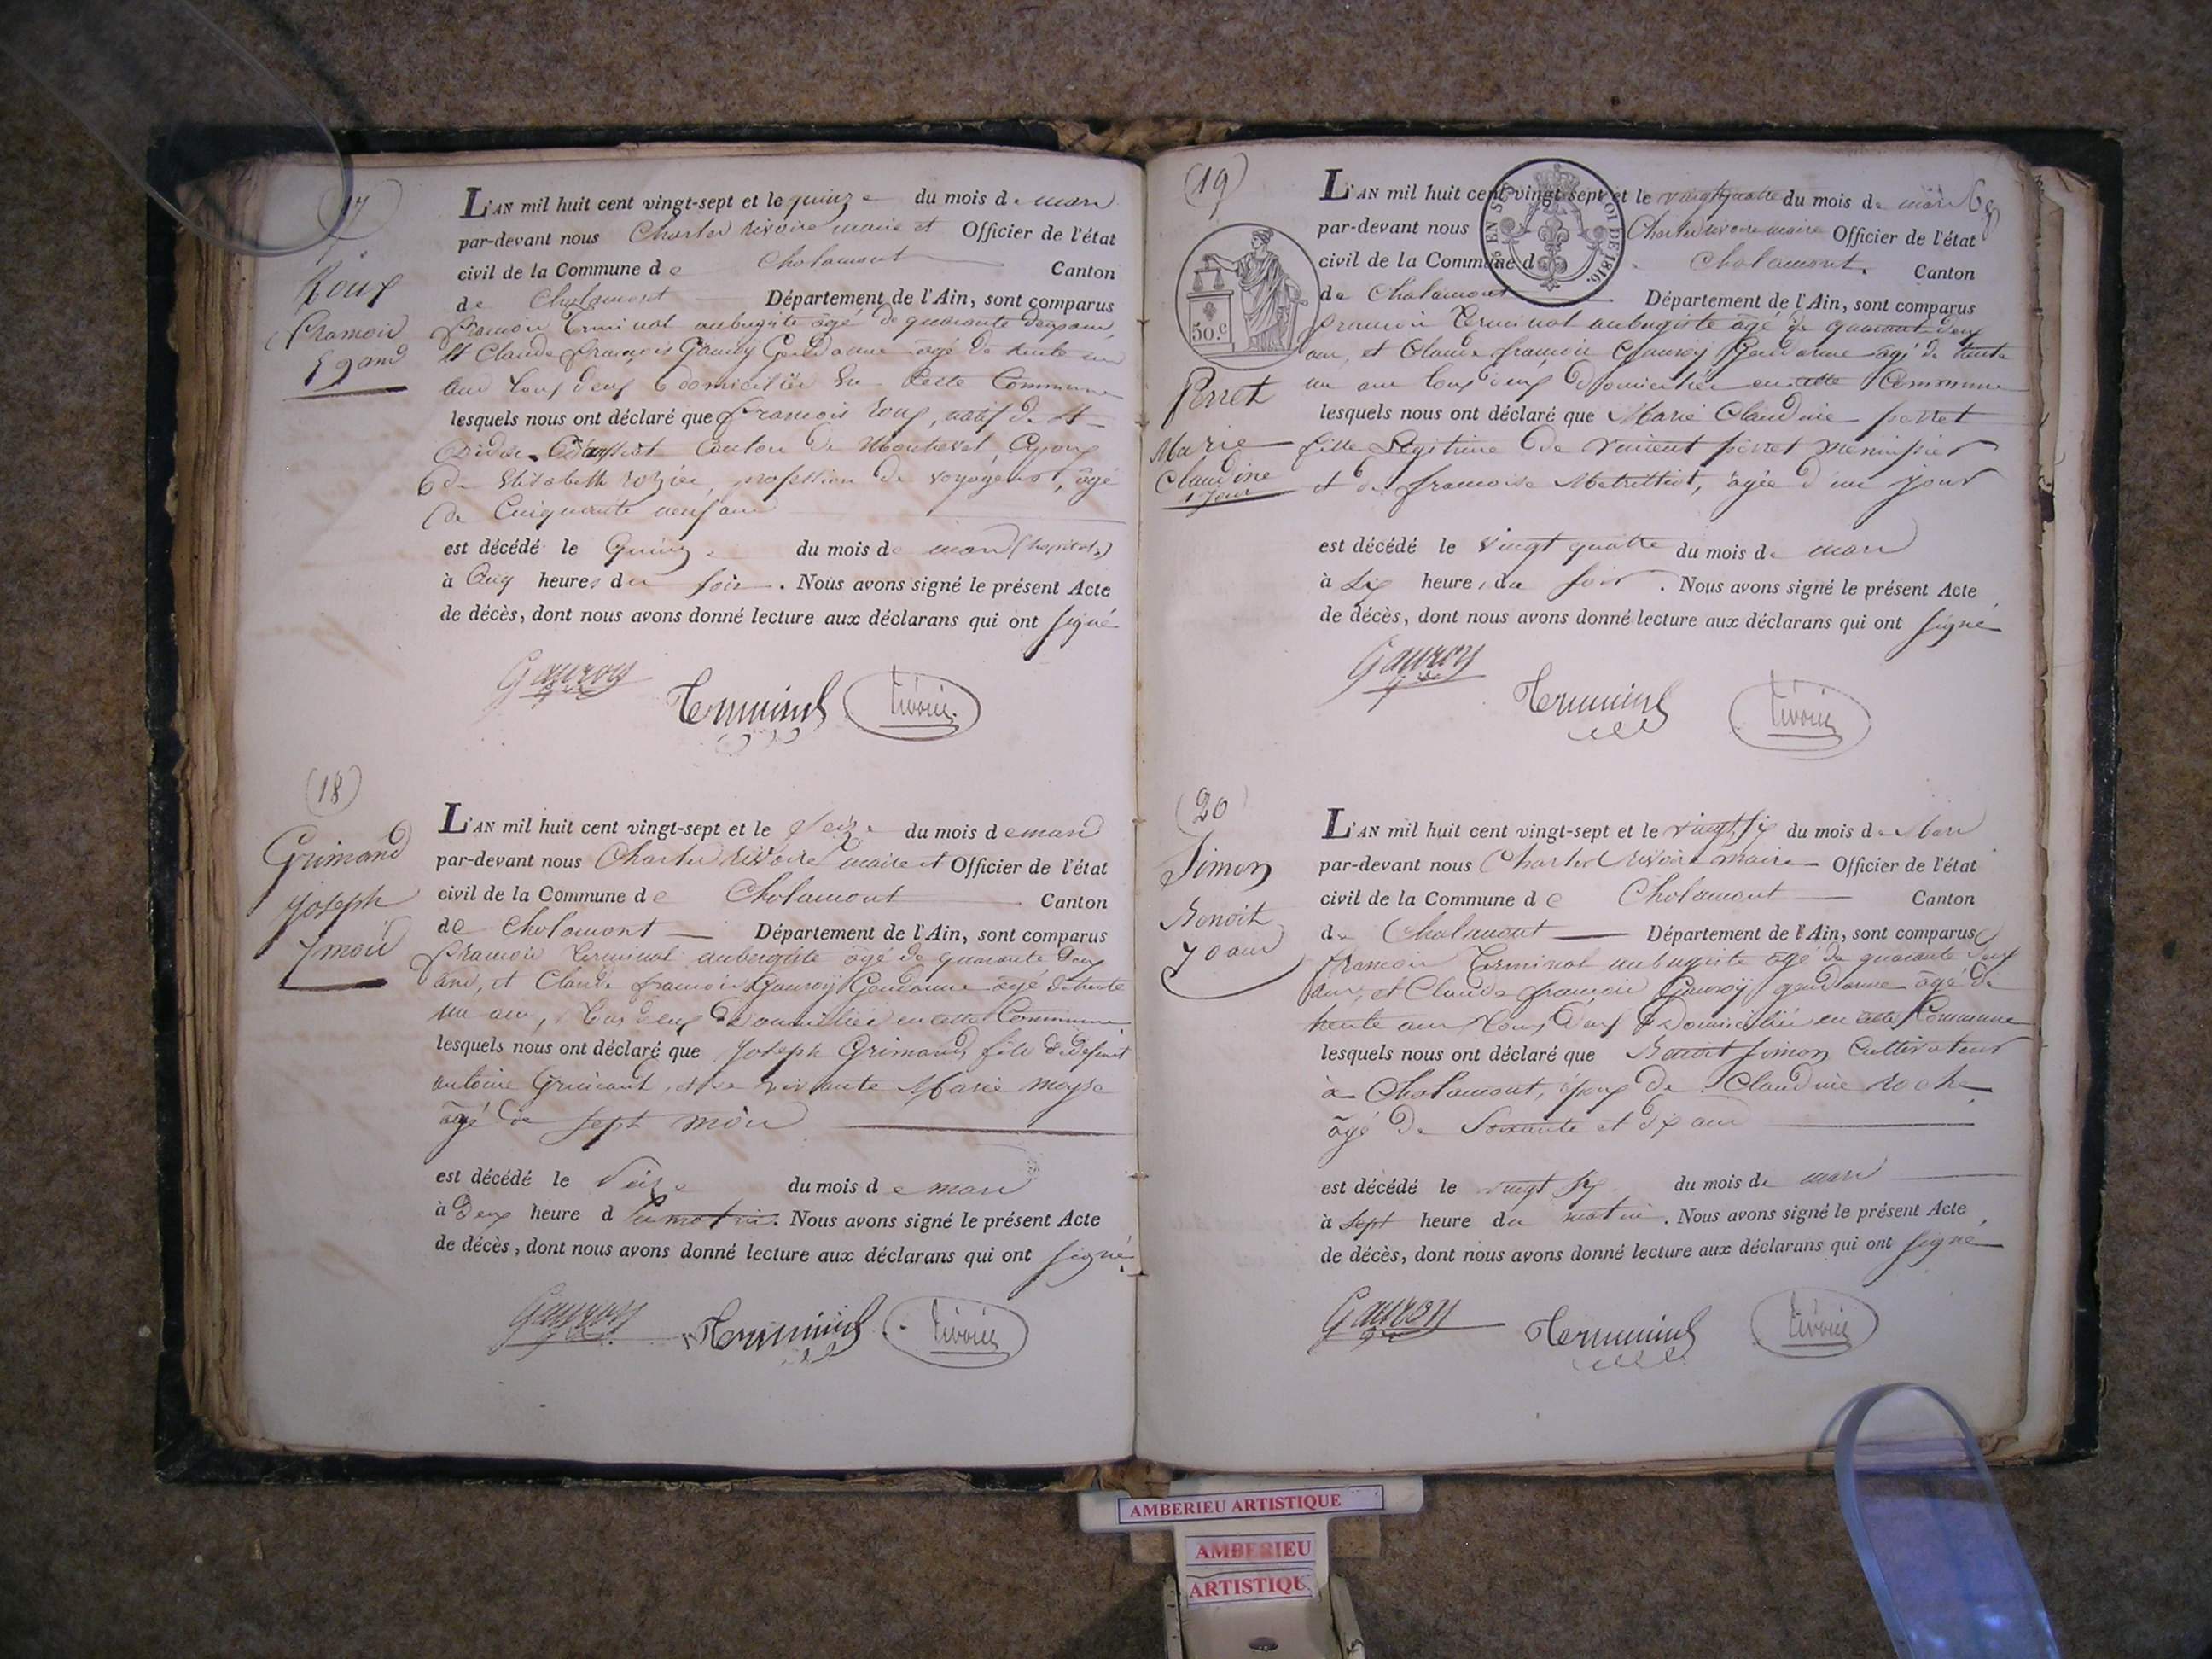 (17)
Roux
François
59 ans
L'AN mil huit cent vingt-sept et le quinze du mois de mars
par-devant nous Charles rivoire maire et Officier de l'état
civil de la Commune de Chalamont Canton
de Chalamont Département de l'Ain, sont comparus
françois Terminal aubergiste âgé de quarante deux ans,
et Claude françois Gauroy Gendarme âgé de trente un
ans tous deux domiciliés en cette Commune
lesquels nous ont déclaré que françois roux, natif de St
Didier Canton de Montrevel, Epoux
de Elisabeth rozier, profession de voyageur, âgé
de Cinquante neuf ans
est décédé le Quinze du mois de mars (hopital)
à Cinq heures du soir. Nous avons signé le présent Acte
de décès, dont nous avons donné lecture aux déclarans qui ont signé
Gauroy Terminal rivoire
(18)
Grimand
joseph
7 mois
L'AN mil huit cent vingt-sept et le seize du mois de mars
par-devant nous Charles rivoire maire et Officier de l'état
civil de la Commune de Chalamont Canton
de Chalamont Département de l'Ain, sont comparus
françois Terminal aubergiste âgé de quarante deux
ans, et Claude françois Gauroy Gendarme âgé de trente
un ans, tous deux domiciliés en cette Commune
lesquels nous ont déclaré que Joseph Grimand, fils de défunt
antoine Grimand, et de vivante Marie moyse
âgé de sept mois
est décédé le Seize du mois de mars
à Deux heure d du matin. Nous avons signé le présent Acte
de décès, dont nous avons donné lecture aux déclarans qui ont signé
Gauroy Terminal rivoire
(19)
50.c
Perret
Marie
Claudine
1 jour
L'AN mil huit cent vingt-sept et le vingt quatre du mois de mars 68
par-devant nous Charles rivoire maire Officier de l'état
civil de la Commune d Chalamont. Canton
de Chalamont Département de l'Ain, sont comparus
françois Terminal aubergiste âgé de quarante deux
ans, et Claude françois Gauroy Gendarme âgé de trente
un ans tous deux domiciliés en cette Commune
lesquels nous ont déclaré que Marie Claudine perret
fille Légitime de vincent perret menuisier
et de françoise, âgée d'un jour
est décédé le vingt quatre du mois de mars
à six heures du soir. Nous avons signé le présent Acte
de décès, dont nous avons donné lecture aux déclarans qui ont signé
Gauroy Terminal rivoire
(20)
Simon
Benoit
70 ans
L'AN mil huit cent vingt-sept et le vingt six du mois de Mars
par-devant nous Charles rivoire maire Officier de l'état
civil de la Commune de Chalamont Canton
de Chalamont Département de l'Ain, sont comparus
françois Terminal aubergiste âgé de quarante deux
ans, et Claude françois Gauroy gendarme âgé de
trente ans tous deux Domiciliés en cette Commune
lesquels nous ont déclaré que Benoit simon Cultivateur
à Chalamont, époux de Claudine roche
âgé de Soixante et dix ans
est décédé le vingt six du mois de mars
à sept heure du matin. Nous avons signé le présent Acte
de décès, dont nous avons donné lecture aux déclarans qui ont signé
Gauroy Terminal rivoire
AMBERIEU ARTISTIQUE
AMBERIEU
ARTISTIQUE